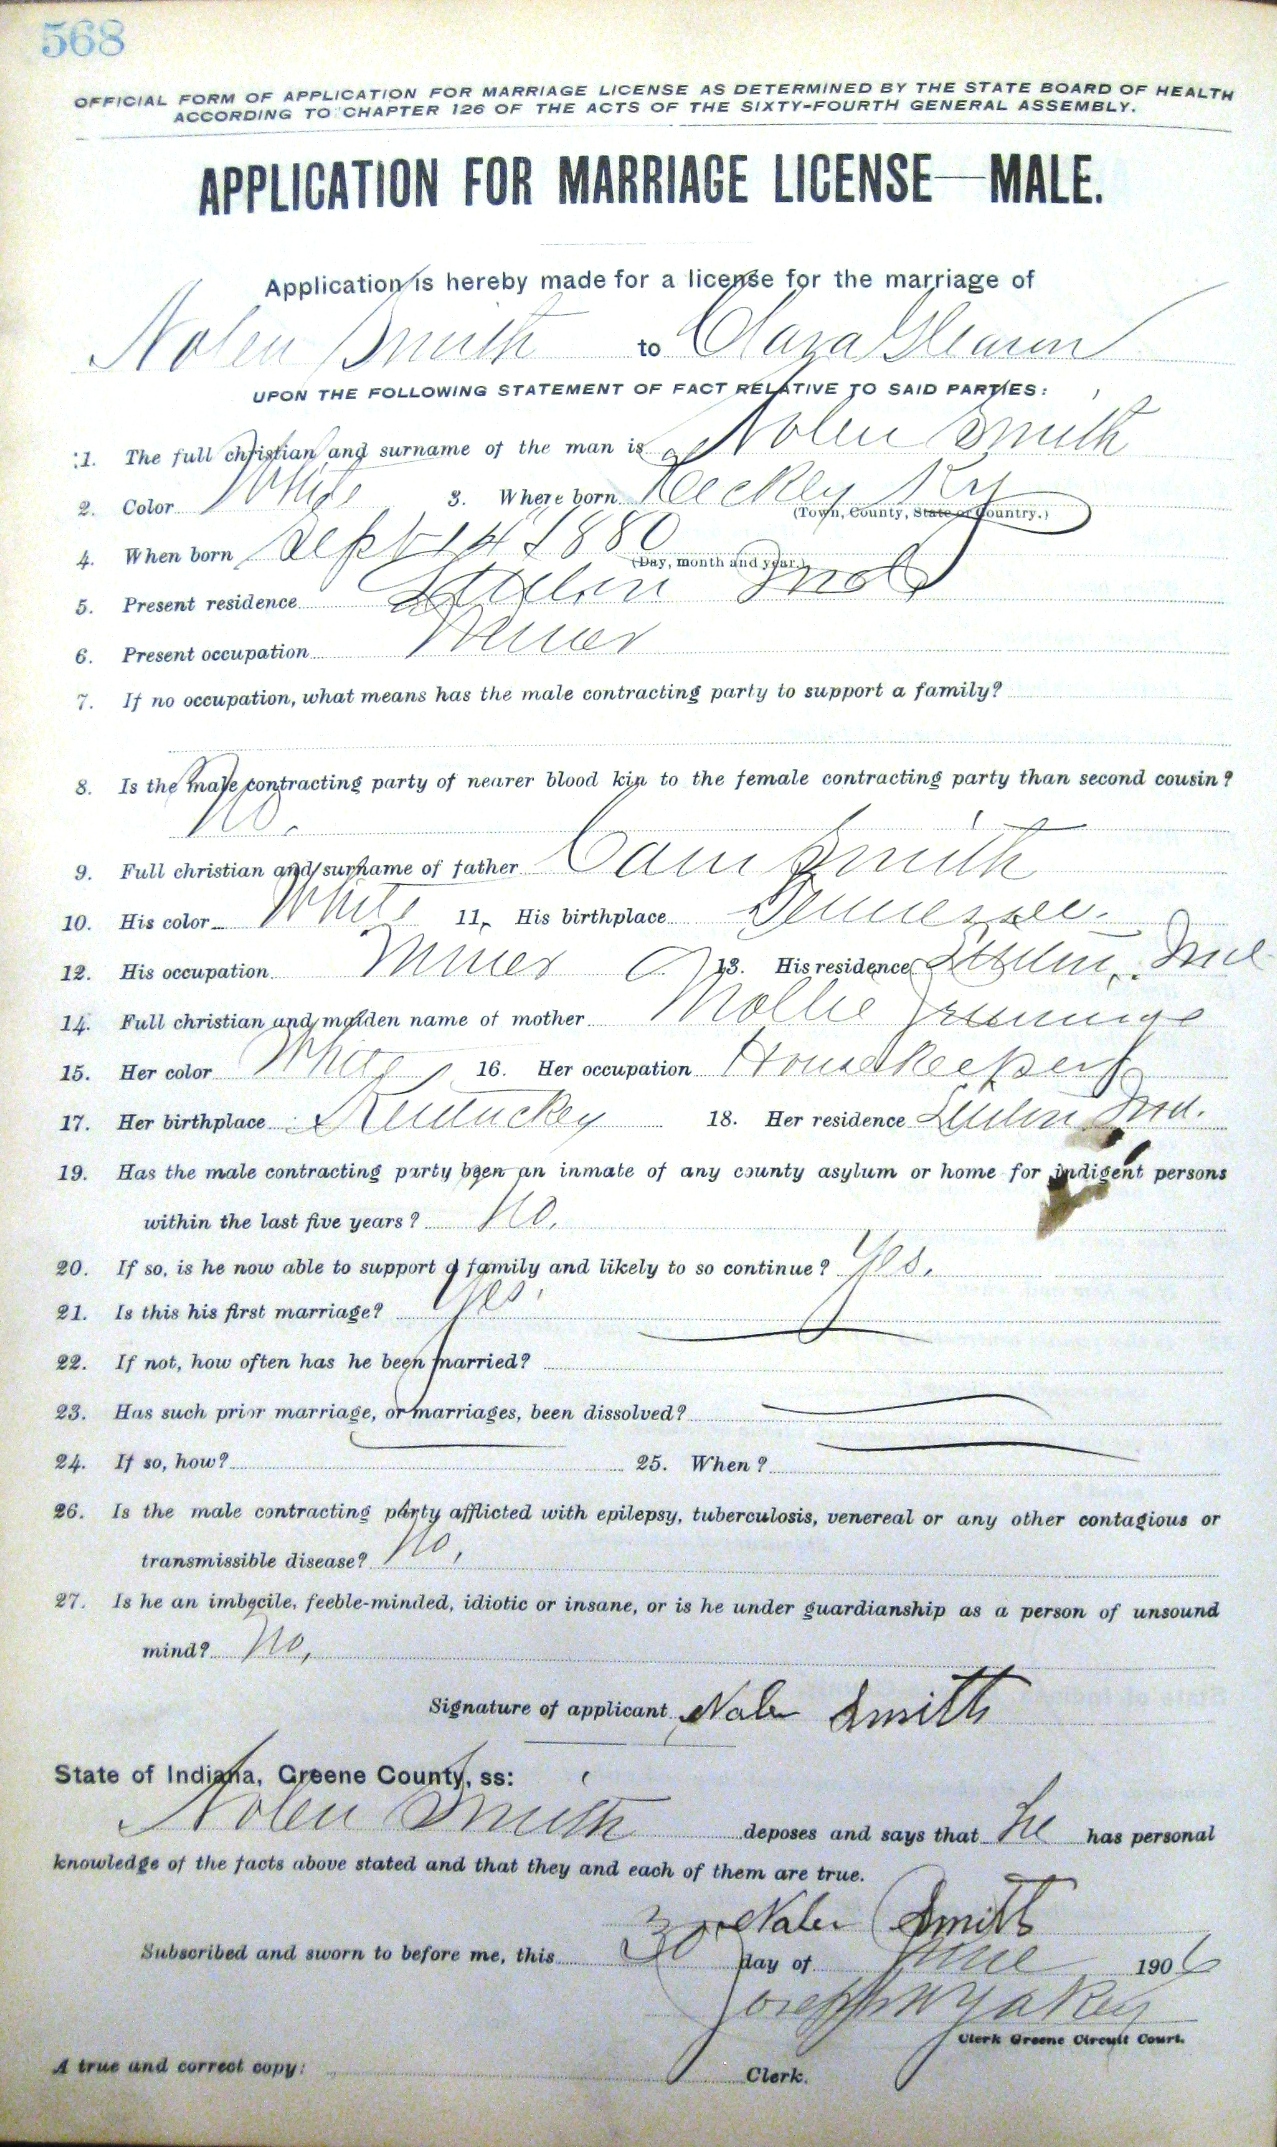 568
OFFICIAL FORM OF APPLICATION FOR MARRIAGE LICENSE AS DETERMINED BY THE STATE BOARD OF HEALTH
ACCORDING TO CHAPTER 126 OF THE ACTS OF THE SIXTY-FOURTH GENERAL ASSEMBLY.
APPLICATION FOR MARRIAGE LICENSE—MALE.
Application is hereby made for a license for the marriage of
Nolen Smith to Clara
UPON THE FOLLOWING STATEMENT OF FACT RELATIVE TO SAID PARTIES:
1. The full christian and surname of the man is Nolen Smith
2. Color White 3. Where born Ky
(Town, County, State or Country.)
4. When born Sept 14 1880
(Day, month and year.)
5. Present residence Linton Ind
6. Present occupation Miner
7. If no occupation, what means has the male contracting party to support a family?
8. Is the male contracting party of nearer blood kin to the female contracting party than second cousin?
No.
9. Full christian and surname of father Cam Smith
10. His color White 11. His birthplace Tennessee.
12. His occupation Miner 13. His residence Linton, Ind
14. Full christian and maiden name of mother Mollie Jennings
15. Her color White 16. Her occupation Housekeeper
17. Her birthplace Kentuckey 18. Her residence Linton Ind.
19. Has the male contracting party been an inmate of any county asylum or home for indigent persons
within the last five years? No.
20. If so, is he now able to support a family and likely to so continue? Yes.
21. Is this his first marriage? Yes.
22. If not, how often has he been married?
23. Has such prior marriage, or marriages, been dissolved?
24. If so, how? 25. When?
26. Is the male contracting party afflicted with epilepsy, tuberculosis, venereal or any other contagious or
transmissible disease? No,
27. Is he an imbecile, feeble-minded, idiotic or insane, or is he under guardianship as a person of unsound
mind? No,
Signature of applicant Nolen Smith
State of Indiana, Greene County, ss:
Nolen Smith deposes and says that he has personal
knowledge of the facts above stated and that they and each of them are true.
Nolen Smith
Subscribed and sworn to before me, this 30 day of June 1906
Joseph W Yakey
Clerk Greene Circuit Court.
A true and correct copy: Clerk.